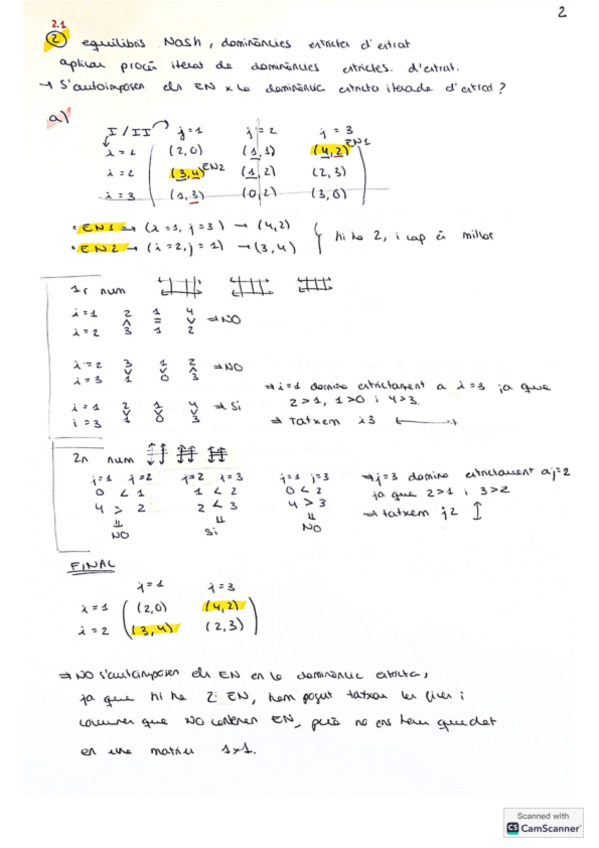 2
2.1
② equilibris Nash, dominàncies estrictes d'estrat
aplicar procés iterat de dominàncies estrictes d'estrat.
→ S'autoimposen els EN x la dominànc estricta iterada d'estrat?
a)
I / II j=1 j=2 j=3
i=1 (2,0) (1,1) (4,2) EN1
i=2 (3,4) EN2 (1,2) (2,3)
i=3 (1,3) (0,2) (3,0)
• EN1 → (i=1, j=3) → (4,2)
• EN2 → (i=2, j=1) → (3,4)
hi ha 2, i cap és millor
1r num
i=1 2 1 4 ⇒ NO
∧ = ∨
i=2 3 1 2
i=2 3 1 2 ⇒ NO
∨ ∨ ∧
i=3 1 0 3
i=1 2 1 4 ⇒ Si
∨ ∨ ∨
i=3 1 0 3
⇒ i=1 domina estrictament a i=3 ja que
2>1, 1>0 i 4>3.
⇒ Tatxem i3
2n num
j=1 j=2 j=2 j=3 j=1 j=3
0 < 1 1 < 2 0 < 2
4 > 2 2 < 3 4 > 3
⇓ ⇓ ⇓
NO Si NO
⇒ j=3 domina estrictament a j=2
ja que 2>1 i 3>2
⇒ tatxem j2 ↕
FINAL
j=1 j=3
i=1 (2,0) (4,2)
i=2 (3,4) (2,3)
⇒ NO s'autoimposen els EN en la dominànc estricta,
ja que hi ha 2 EN, hem pogut tatxar les files i
columnes que NO contenen EN, però no ens hem quedat
en una matriu 1x1.
Scanned with
CS CamScanner